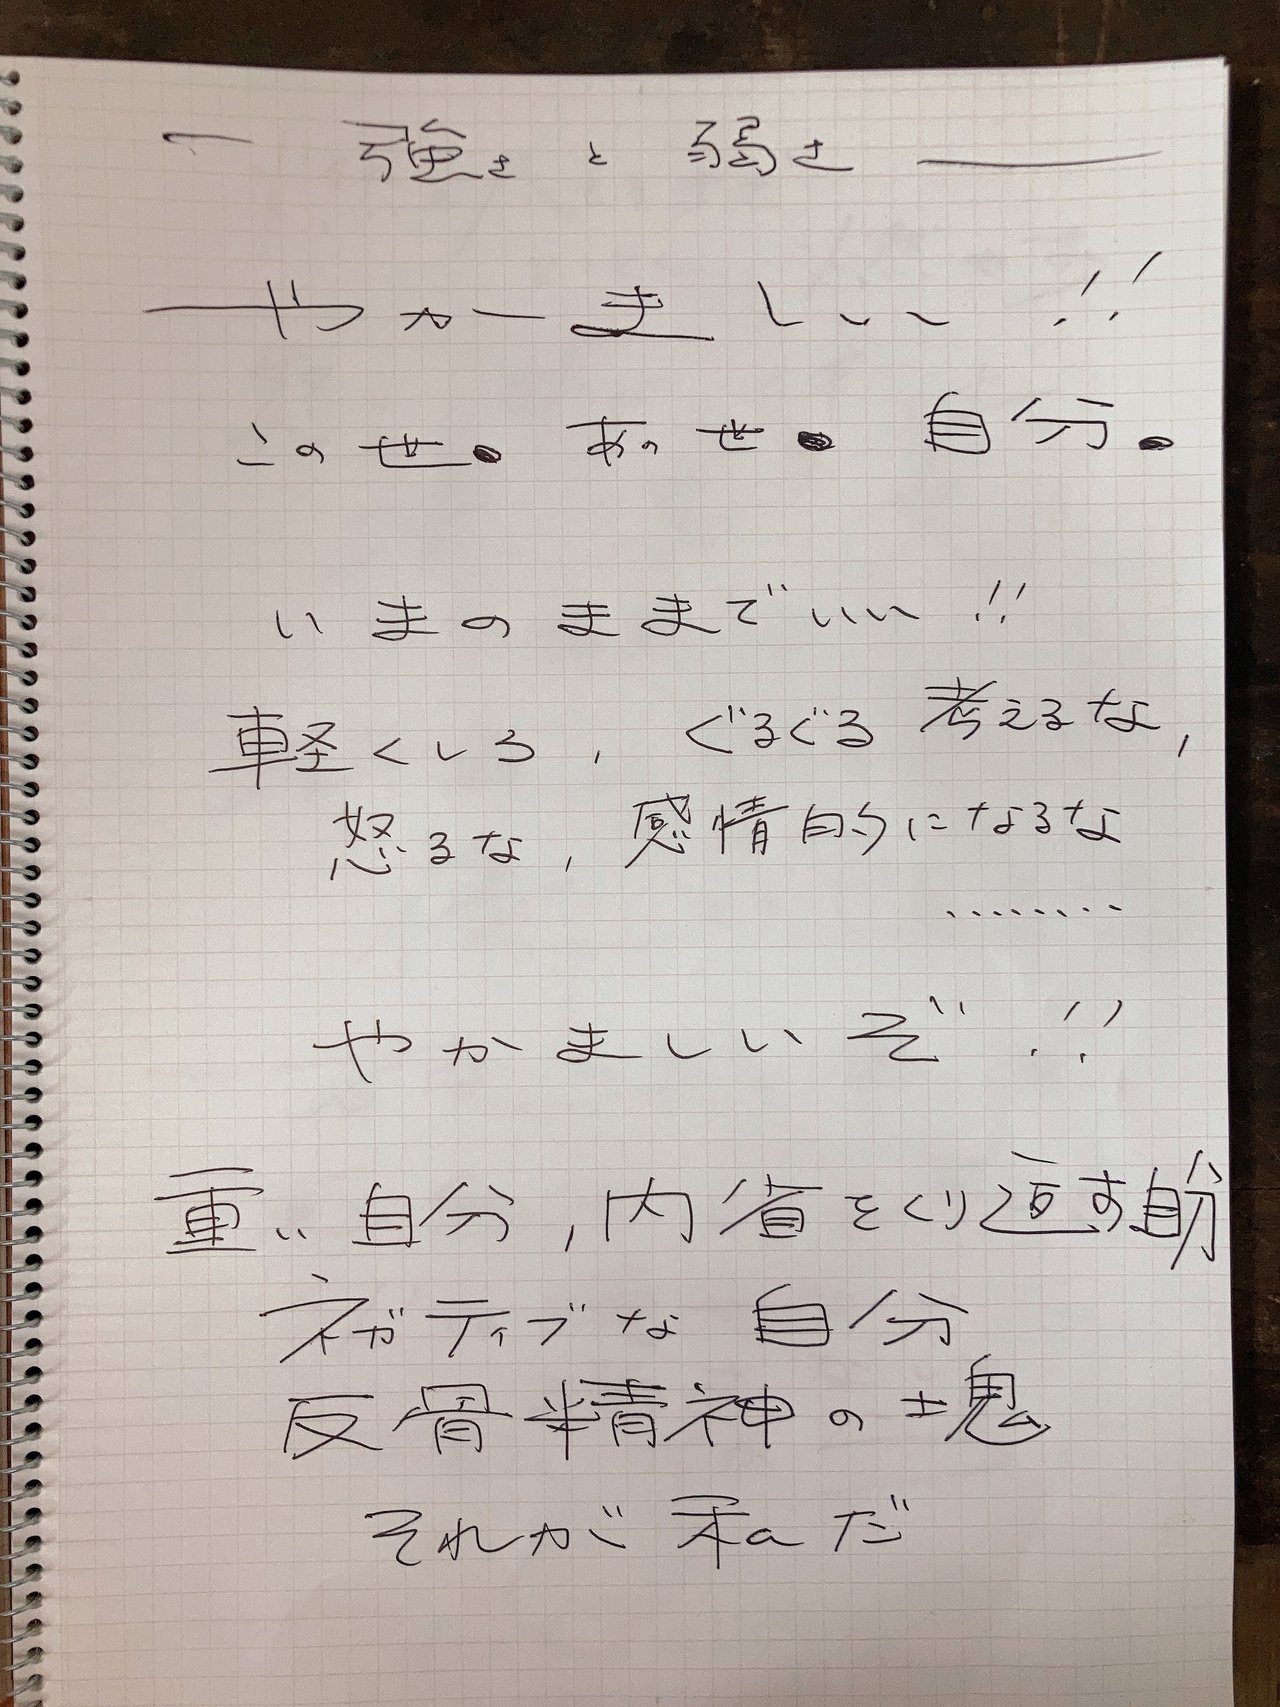 ― 強さと弱さ ―
やかーましいい!!
この世。あの世。自分。
いまのままでいい!!
軽くしろ, ぐるぐる考えるな,
怒るな, 感情的になるな
‥‥‥‥
やかましいぞ!!
重い自分, 内省をくり返す自分
ネガティブな自分
反骨精神の塊
それが私だ